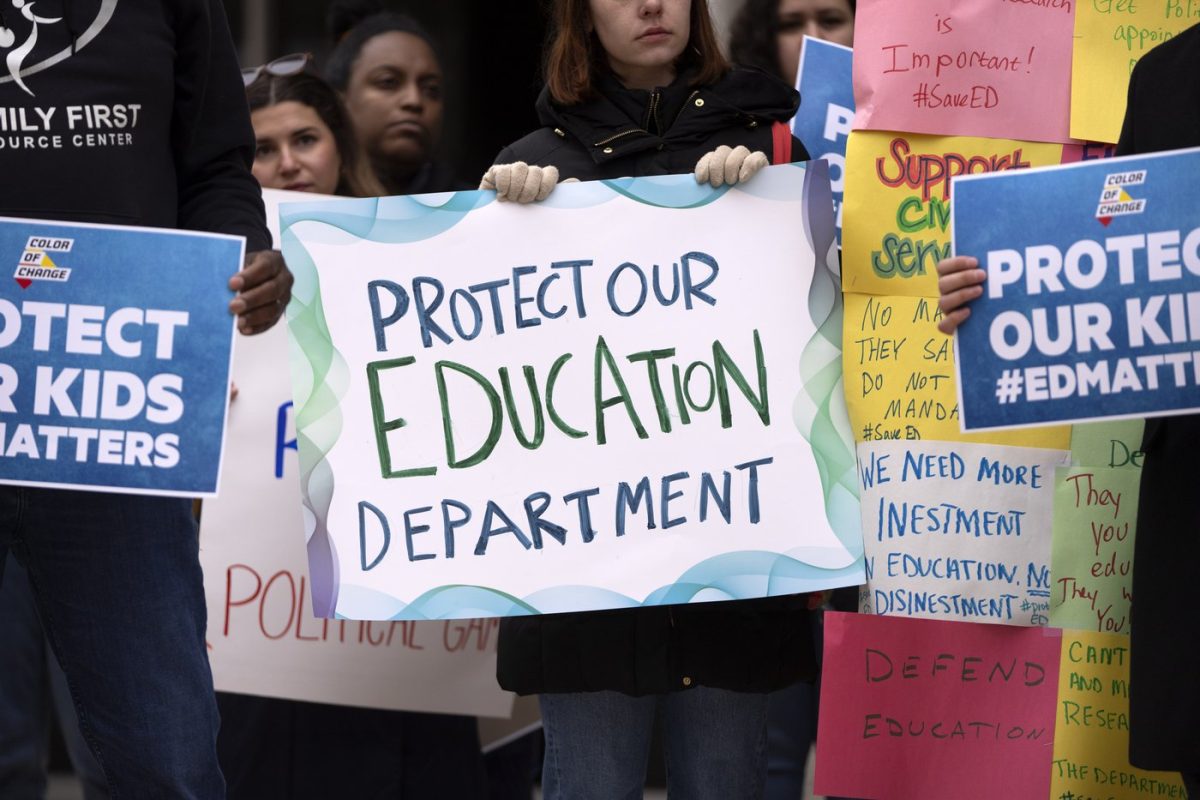 MILY FIRST
OURCE CENTER
COLOR
OF
CHANGE
OTECT
R KIDS
MATTERS
POLITICAL GAM
PROTECT OUR
EDUCATION
DEPARTMENT
is
Important!
#SaveED
Get Poli
appoin
Support
Civ
Serv
NO MA
THEY SA
DO NOT
MANDA
#Save ED
WE NEED MORE
INESTMENT
N EDUCATION. NO
DISINESTMENT
DEFEND
EDUCATION
De
They
you
edu
They w
You!
CANT
AND M
RESEA
THE DEPARTME
COLOR
OF
CHANGE
PROTEC
OUR KI
#EDMATT